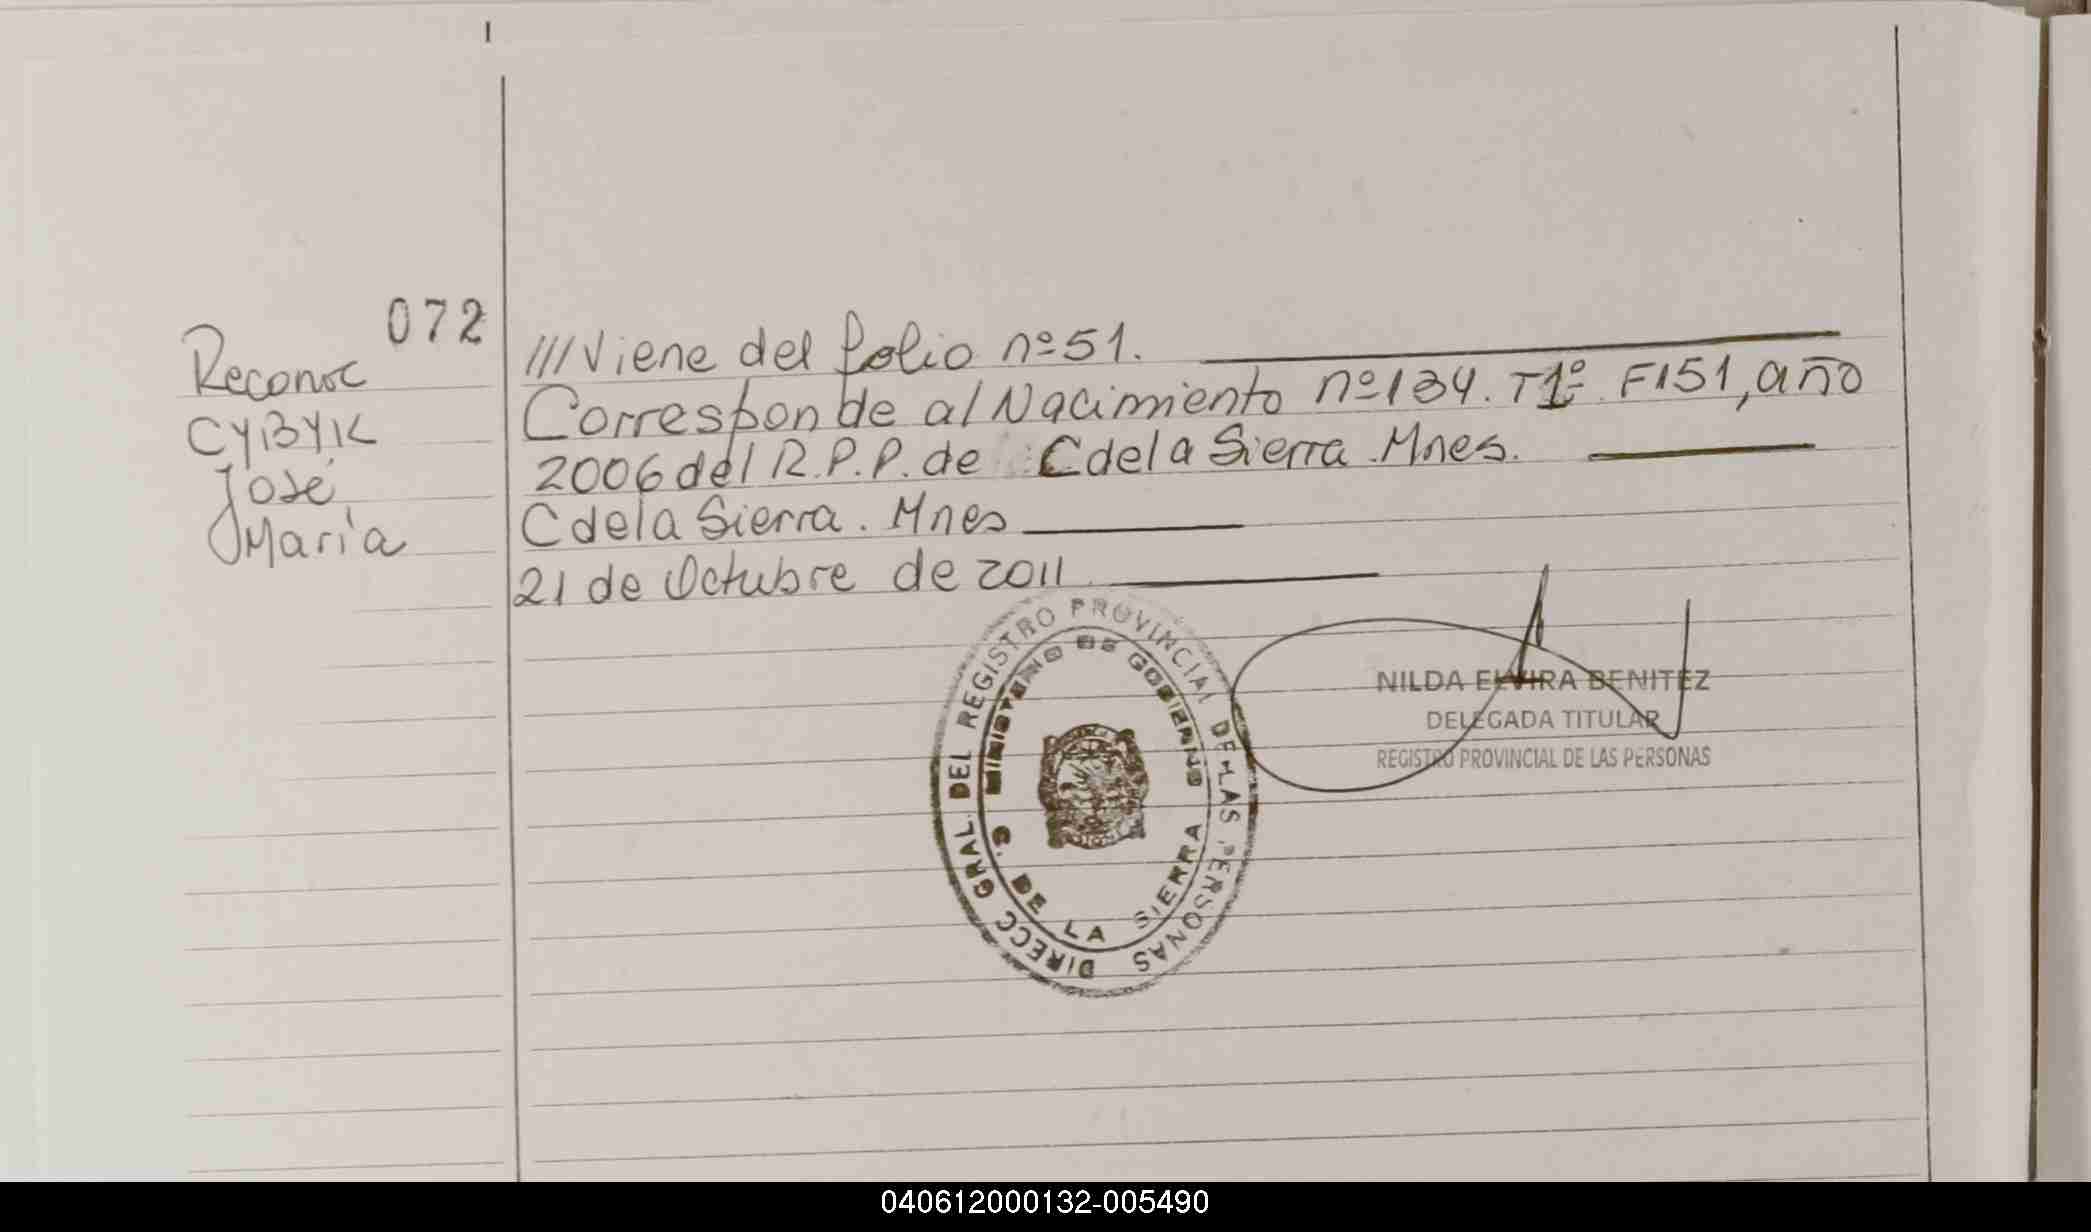 072
Reconoc
CYBYIK
José
María
///Viene del folio nº51.
Corresponde al Nacimiento nº134. T1º. F151, año
2006 del R.P.P. de C de la Sierra. Mnes.
C de la Sierra. Mnes
21 de Octubre de 2011
DIRECC GRAL. DEL REGISTRO PROVINCIAL DE LAS PERSONAS
MINISTERIO DE GOBIERNO
C. DE LA SIERRA
NILDA ELVIRA BENITEZ
DELEGADA TITULAR
REGISTRO PROVINCIAL DE LAS PERSONAS
040612000132-005490